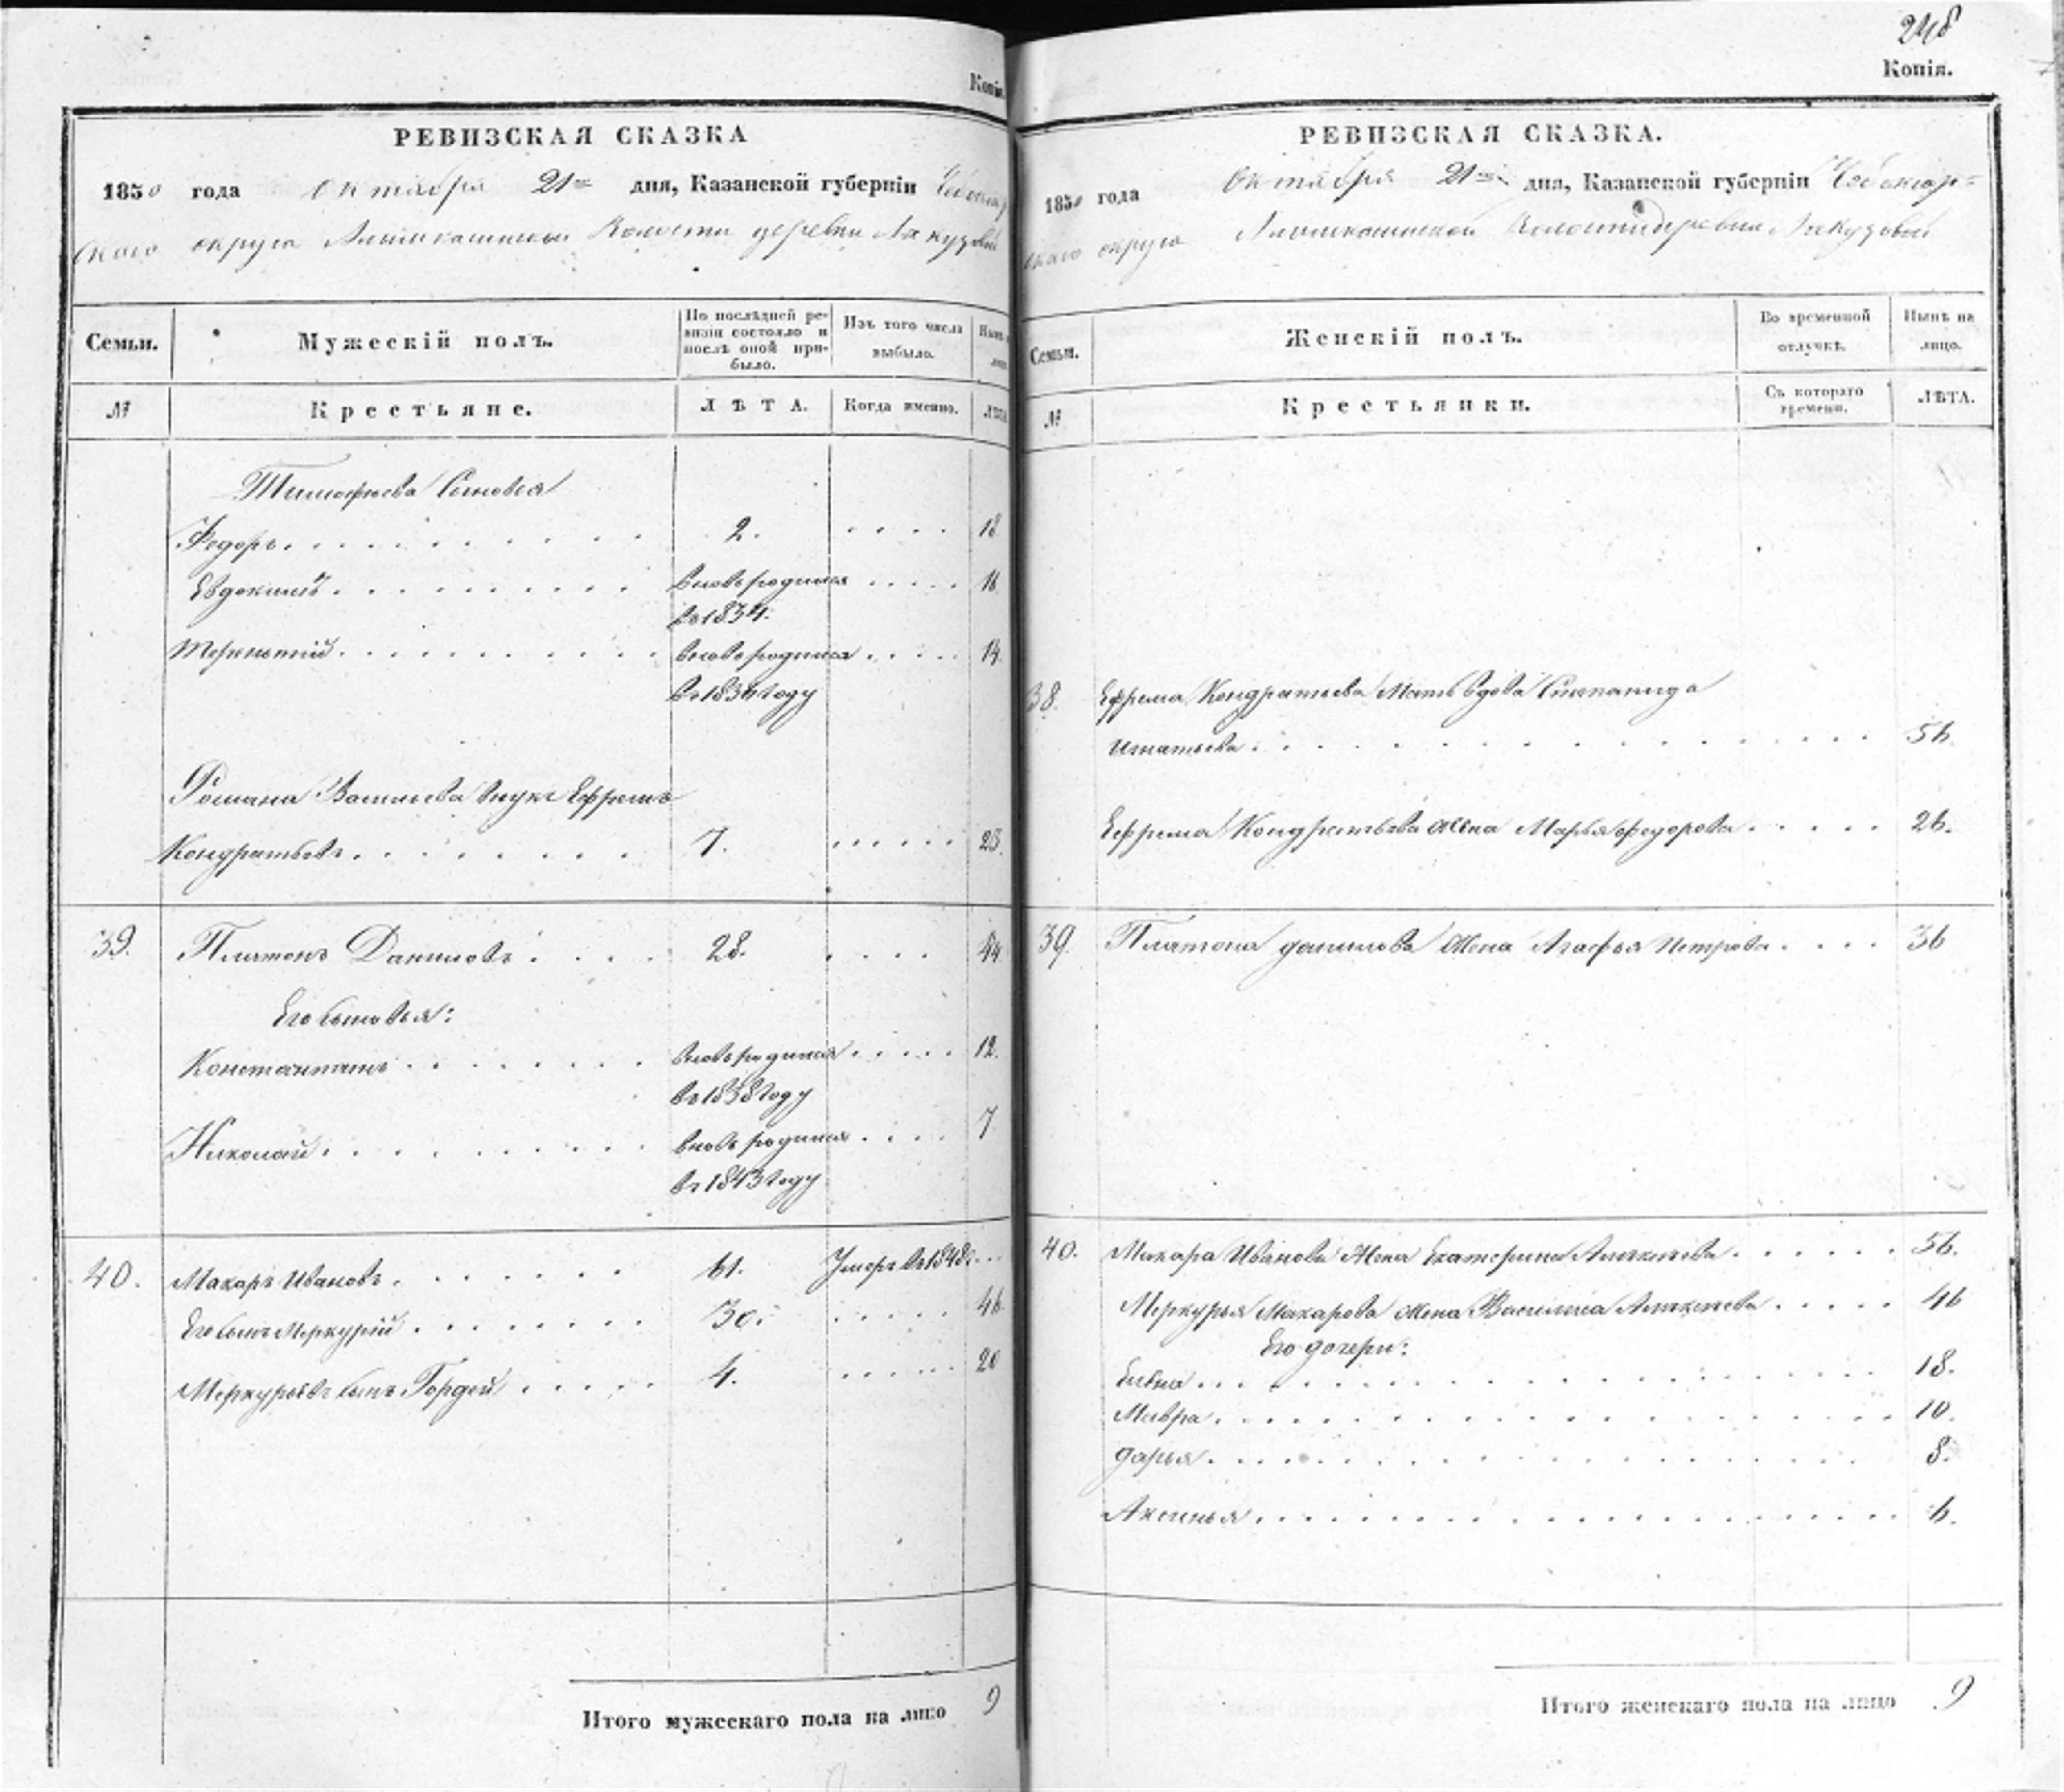 Копія.
РЕВИЗСКАЯ СКАЗКА
1850 года октября 21 дня, Казанской губерніи Чебоксар
скаго округа Волости деревни Лакузовой
Семьи.
Мужескій полъ.
По послѣдней ре-
визіи состояло и
послѣ оной при-
было.
Изъ того числа
выбыло.
Нынѣ
лицо
№
Крестьяне.
ЛѢТА.
Когда именно.
ЛѢТА
Тимофеева Сыновья
Федоръ 2. 18
Евдокимъ вновь родился 16
въ 1834.
Терентій вновь родился 14
въ 1836 году
Романа Васильева внукъ Ефремъ
Кондратьевъ 7. 23.
39. Платонъ Даниловъ 28. 44
Его сыновья:
Константинъ вновь родился 12.
въ 1838 году
Николай вновь родился 7
въ 1843 году
40. Макаръ Ивановъ 61. Умеръ въ 1848.
Его сынъ Меркурій 30. 46
Меркурьевъ сынъ Гордей 4. 20
Итого мужескаго пола на лицо 9
248
Копія.
РЕВИЗСКАЯ СКАЗКА.
1850 года Октября 21 дня, Казанской губерніи Чебоксар=
скаго округа Волости деревни Лакузовой
Семьи.
Женскій полъ.
Во временной
отлучкѣ.
Нынѣ на
лицо.
№
Крестьянки.
Съ котораго
времени.
ЛѢТА.
38. Ефрема Кондратьева Мать вдова Степанида
Игнатьева 56.
Ефрема Кондратьева жена Марья федорова 26.
39. Платона данилова жена Агафья Петрова 36
40. Макара Иванова жена Екатерина Алексеева 56.
Меркурья Макарова жена Василиса Алексеева 46
Его дочери:
Елена 18.
Мавра 10.
дарья 8.
Аксинья 6.
Итого женскаго пола на лицо 9